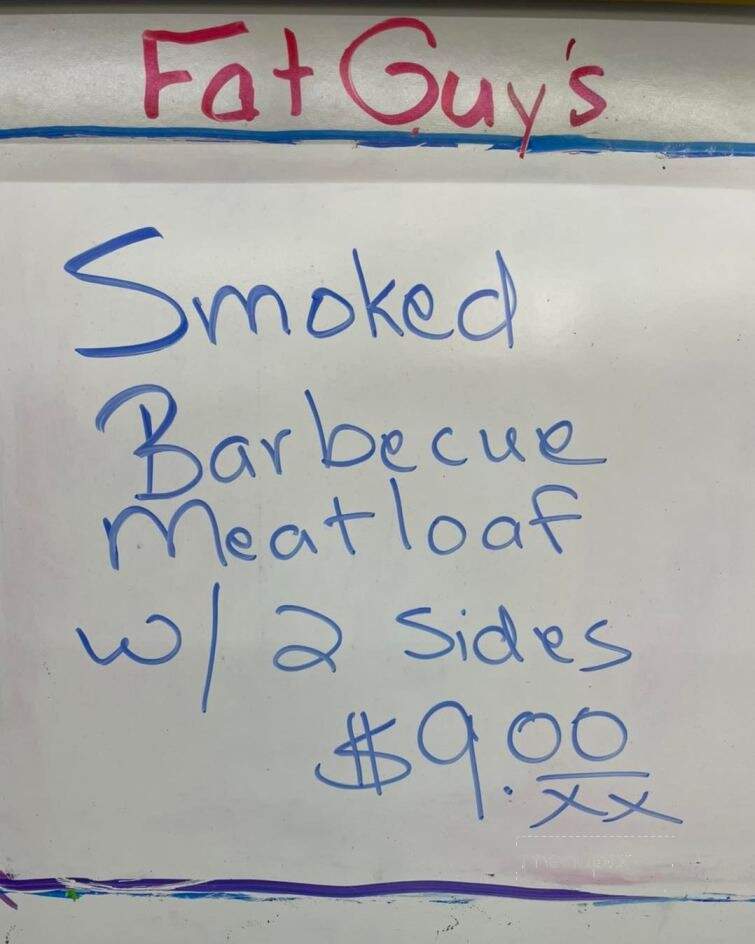 Fat Guy's
Smoked
Barbecue
Meatloaf
w/ 2 Sides
$9.00
xx
menupix